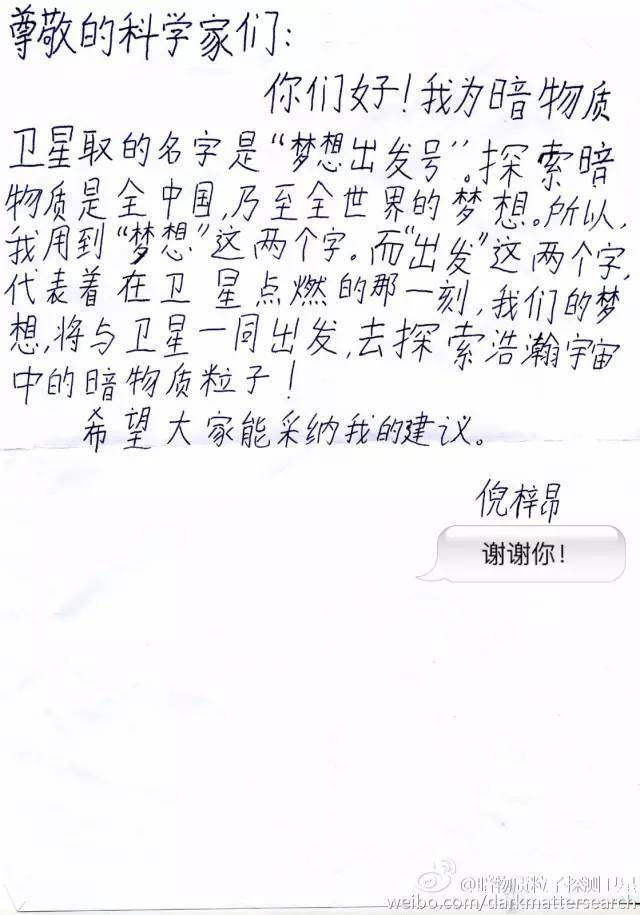 尊敬的科学家们：
你们好！我为暗物质
卫星取的名字是“梦想出发号”。探索暗
物质是全中国，乃至全世界的梦想。所以，
我用到“梦想”这两个字。而“出发”这两个字，
代表着在卫星点燃的那一刻，我们的梦
想，将与卫星一同出发，去探索浩瀚宇宙
中的暗物质粒子！
希望大家能采纳我的建议。
倪梓昂
谢谢你！
@暗物质粒子探测卫星
weibo.com/darkmattersearch